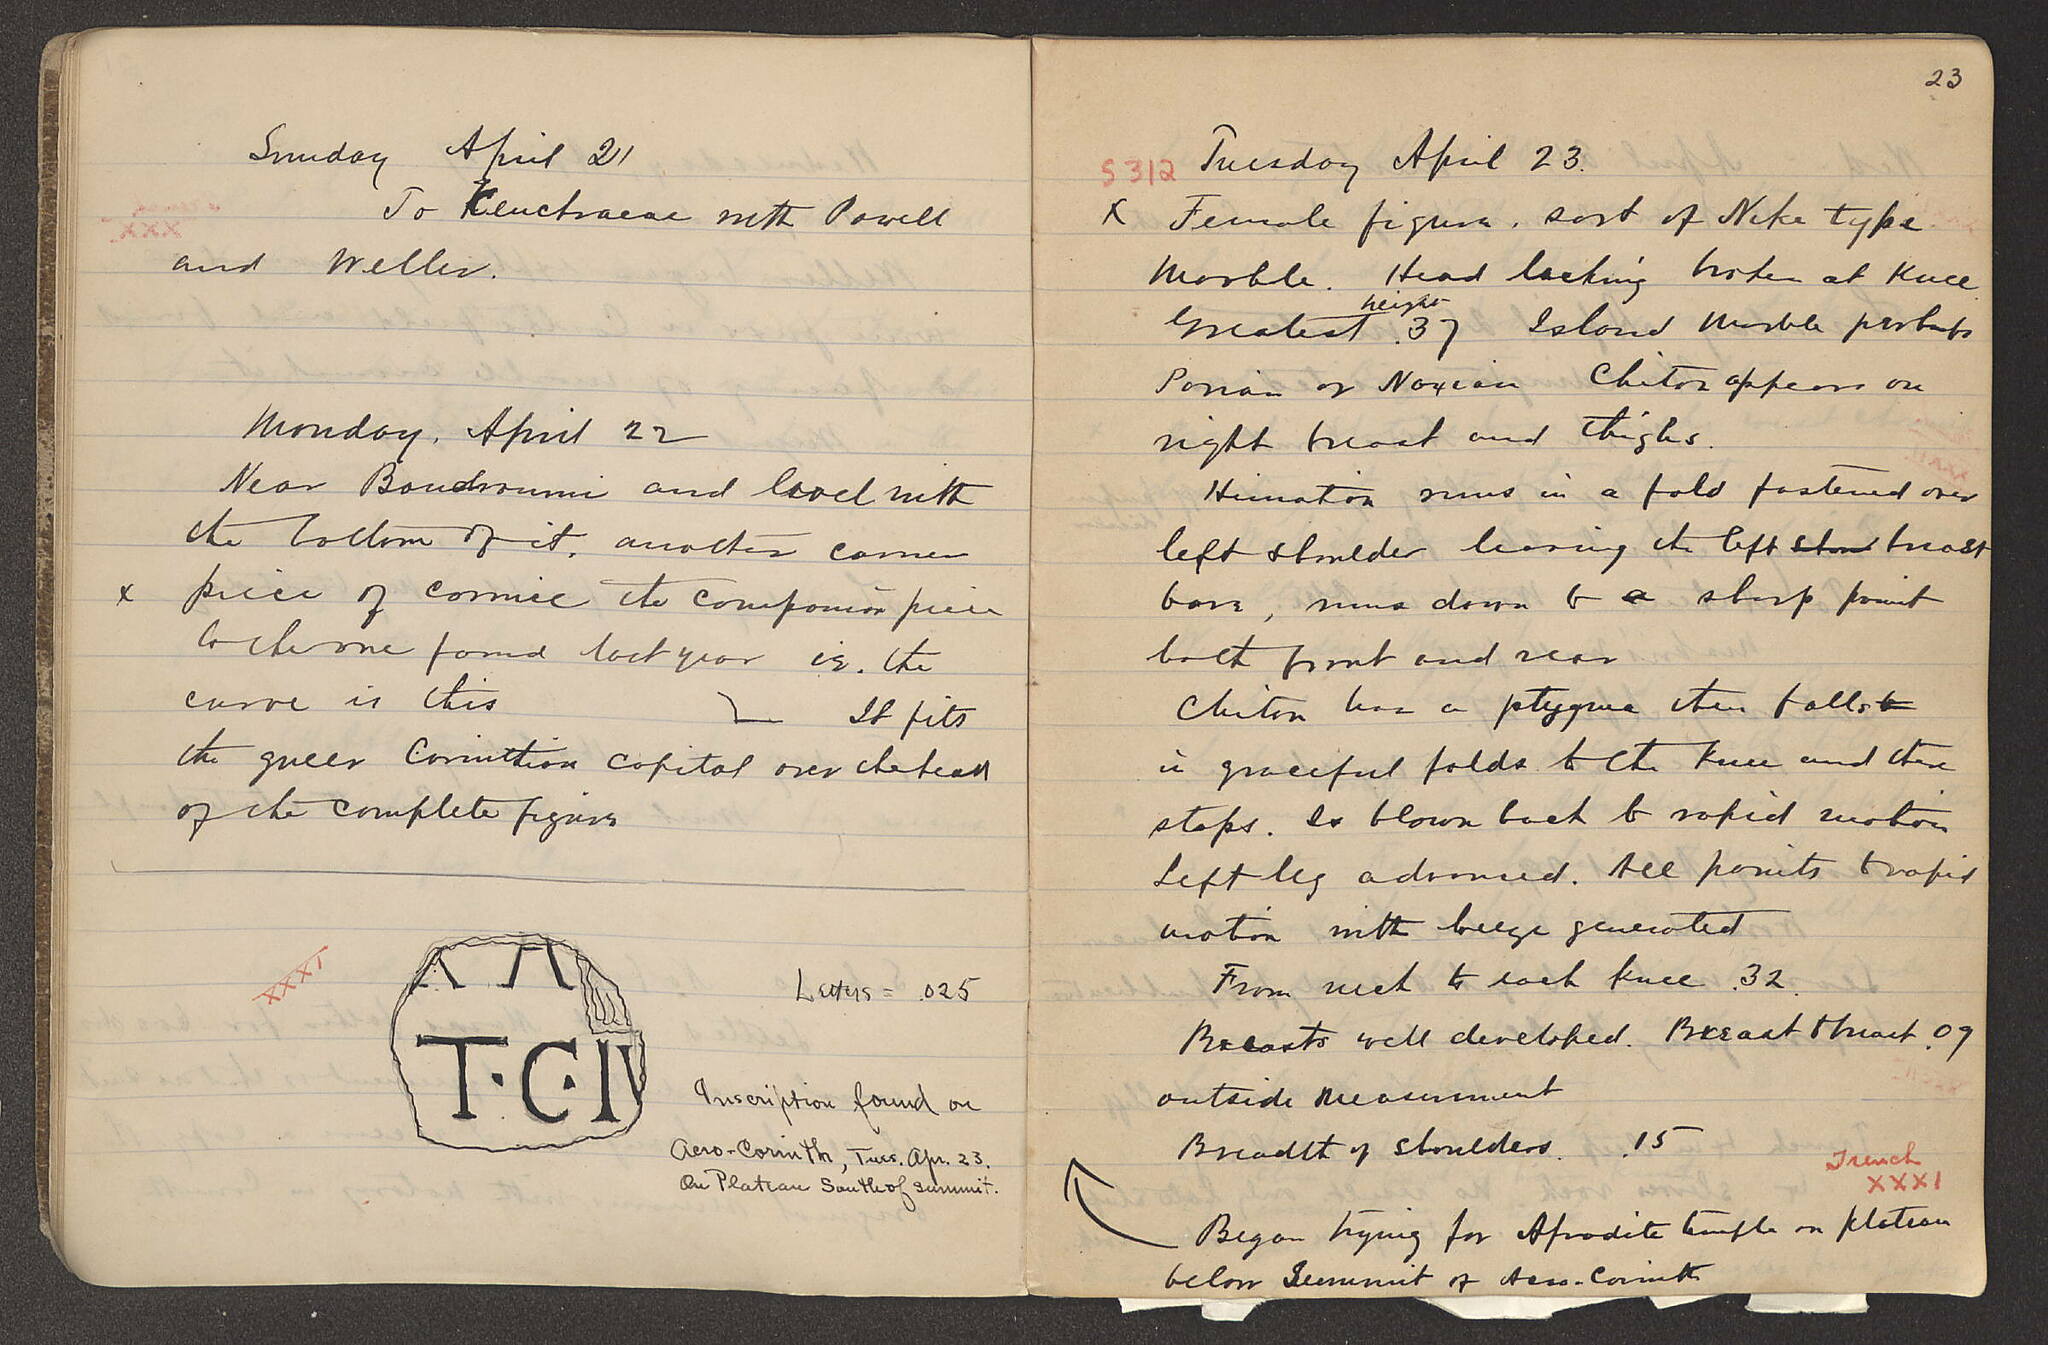 Sunday April 21
To Kenchraeae with Powell
and Weller.
Monday, April 22
Near Boudroumi and level with
the bottom of it, another corner
x piece of cornice the companion piece
to the one found last year ie. the
curve is this It fits
the queer Corinthian capital over the head
of the complete figure
XXXI
Letters = .025
T·C·IV
Inscription found on
Acro-Corinth, Tues. Apr. 23.
On Plateau South of summit.
23
S 312 Tuesday April 23.
x Female figure, sort of Nike type
Marble. Head lacking broken at knee
height
Greatest .37 Island marble perhaps
Parian or Naxian Chiton appears on
right breast and thighs.
Himation runs in a fold fastened over
left shoulder leaving the left breast
bare, runs down to a sharp point
both front and rear
Chiton has a ptygma then falls
in graceful folds to the knee and there
stops. Is blown back by rapid motion
Left leg advanced. All points to rapid
motion with breeze generated
From neck to each knee .32.
Breasts well developed. Breast to breast .09
outside measurement
Breadth of shoulders. .15
Trench
XXXI
Began trying for Afrodite temple on plateau
below Summit of Acro-Corinth